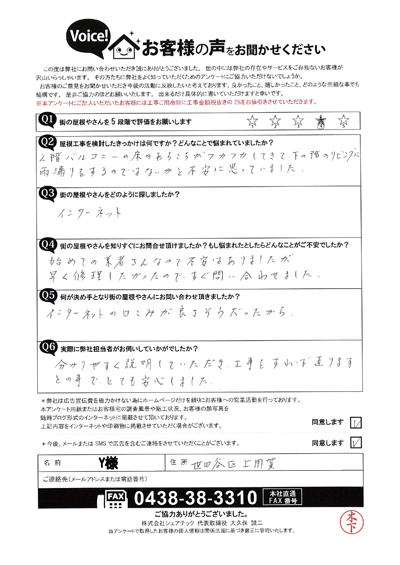 Voice! お客様の声をお聞かせください
この度は弊社にお問い合わせいただき誠にありがとうございました。世の中には弊社の存在やサービスをご存知ないお客様が
沢山いらっしゃいます。その方たちに弊社をよく知っていただくためのアンケートにご協力いただけないでしょうか。
お客様のご意見をお聞かせいただき今後の活動に反映したいと考えております。良かったこと、嬉しかったこと、どのような些細な事でも
結構です。是非ご協力のほどお願いいたします。出来るだけ具体的に書いていただけますと幸いです。
※本アンケートにご記入いただいたお客様には工事ご用命時に工事金額税抜きの2%をお値引きさせていただきます。
Q1 街の屋根やさんを5段階で評価をお願いします ☆ ☆ ☆ ★ ☆
Q2 屋根工事を検討したきっかけは何ですか?どんなことで悩まれていましたか?
2階バルコニーの床のあちこちがフカフカしてきて、下の階のリビングに
雨漏りをするのではないかと不安に思っていました。
Q3 街の屋根やさんをどのように探しましたか?
インターネット
Q4 街の屋根やさんを知りすぐにお問合せ頂けましたか?もし悩まれたとしたらどんなことがご不安でしたか?
始めての業者さんなので不安はありましたが
早く修理したかったのですぐ問い合わせました。
Q5 何が決め手となり街の屋根やさんにお問い合わせ頂きましたか?
インターネットの口コミが良さそうだったから。
Q6 実際に弊社担当者がお伺いしていかがでしたか?
分かりやすく説明していただき、工事をすれば直ります
との事で、とても安心しました。
*弊社は広告宣伝費を極力かけない為にホームページだけを頼りにお客様への営業活動を行っております。
本アンケート用紙またはお客様宅の調査風景や施工状況、お客様の顔写真を
随時ブログ形式でインターネットに掲載させて頂いております。
上記内容をインターネットや印刷物に掲載させていただく場合がございます。 同意します
*今後、メールまたはSMSで広告を含むご連絡をさせていただくことがございます。 同意します
名前 Y様 住所 世田谷区上用賀
ご連絡先(メールアドレスまたは電話番号)
FAX 0438-38-3310 本社直通 FAX番号
ご協力ありがとうございました。
株式会社シェアテック 代表取締役 大久保 誠二
当アンケートで取得したお客様の個人情報は関係法規に基づき厳正に管理いたします。
木下